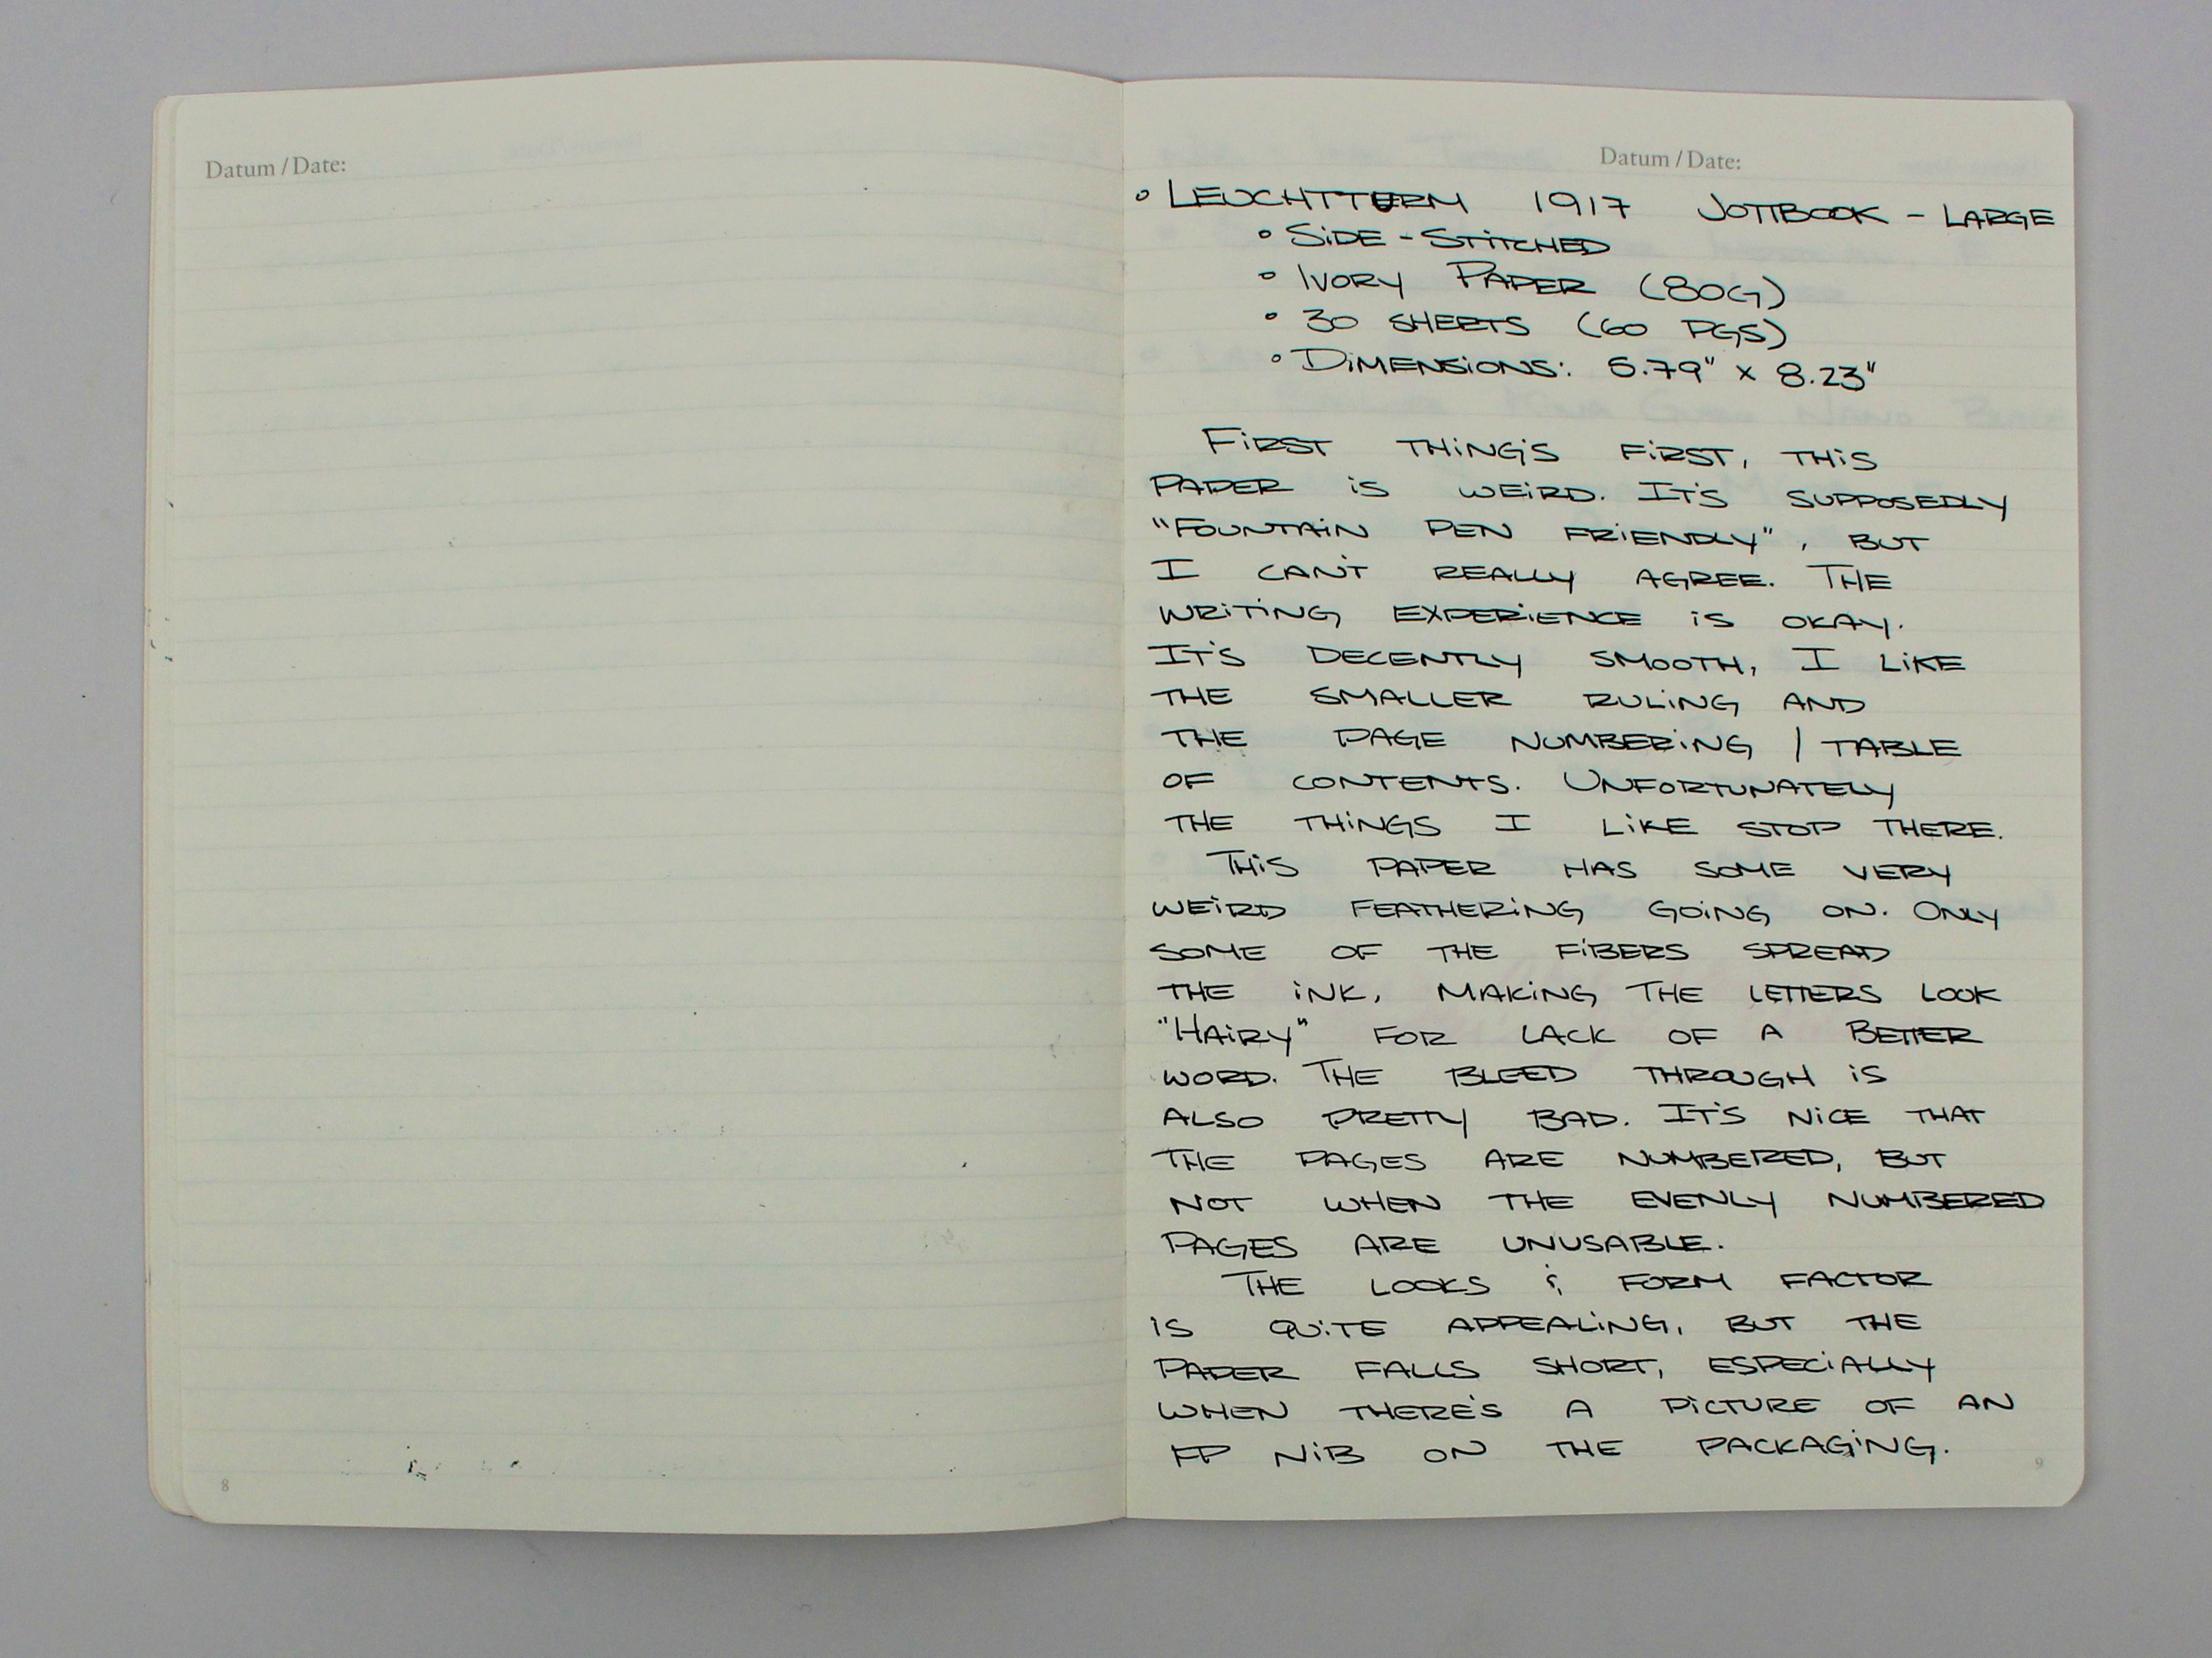 Datum / Date:
8
Datum / Date:
° LEUCHTTURM 1917 JOTTBOOK - LARGE
° SIDE - STITCHED
° IVORY PAPER (80G)
° 30 SHEETS (60 PGS)
° DIMENSIONS: 5.79" x 8.23"
FIRST THING'S FIRST, THIS
PAPER IS WEIRD. IT'S SUPPOSEDLY
"FOUNTAIN PEN FRIENDLY", BUT
I CAN'T REALLY AGREE. THE
WRITING EXPERIENCE IS OKAY.
IT'S DECENTLY SMOOTH, I LIKE
THE SMALLER RULING AND
THE PAGE NUMBERING / TABLE
OF CONTENTS. UNFORTUNATELY
THE THINGS I LIKE STOP THERE.
THIS PAPER HAS SOME VERY
WEIRD FEATHERING GOING ON. ONLY
SOME OF THE FIBERS SPREAD
THE INK, MAKING THE LETTERS LOOK
"HAIRY" FOR LACK OF A BETTER
WORD. THE BLEED THROUGH IS
ALSO PRETTY BAD. IT'S NICE THAT
THE PAGES ARE NUMBERED, BUT
NOT WHEN THE EVENLY NUMBERED
PAGES ARE UNUSABLE.
THE LOOKS & FORM FACTOR
IS QUITE APPEALING, BUT THE
PAPER FALLS SHORT, ESPECIALLY
WHEN THERE'S A PICTURE OF AN
FP NIB ON THE PACKAGING.
9